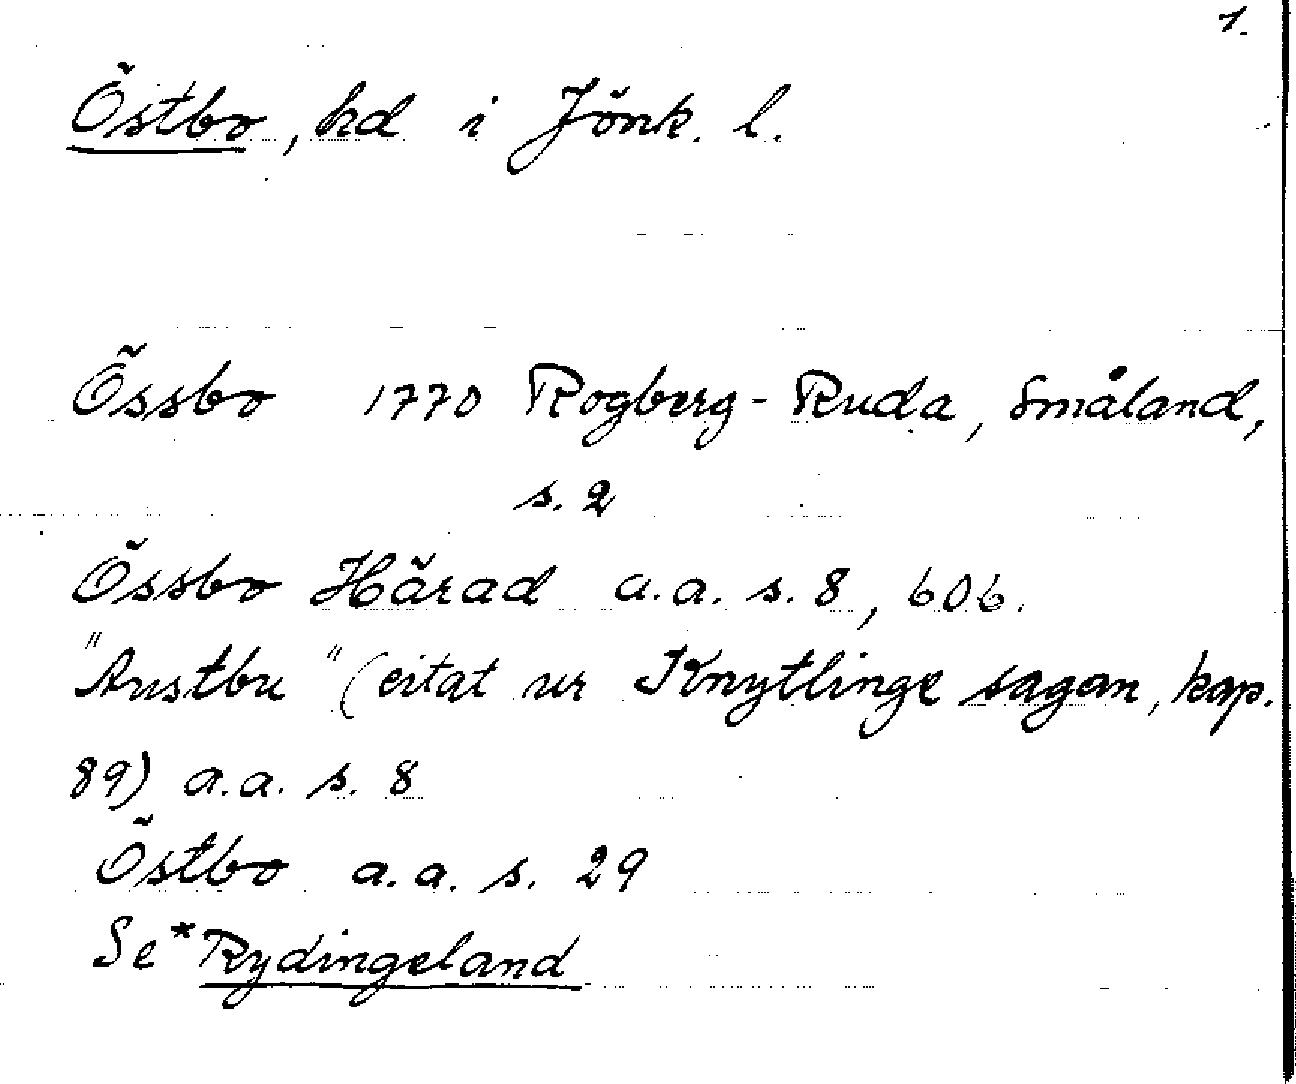 1.
Östbo, hd i Jönk. l.
Össbo 1770 Rogberg-Ruda, Småland,
s. 2
Össbo Härad a.a. s. 8, 606.
"Austbu" (citat ur Knytlinge sagan, kap.
89) a.a. s. 8
Östbo a.a. s. 29
Se *Rydingeland